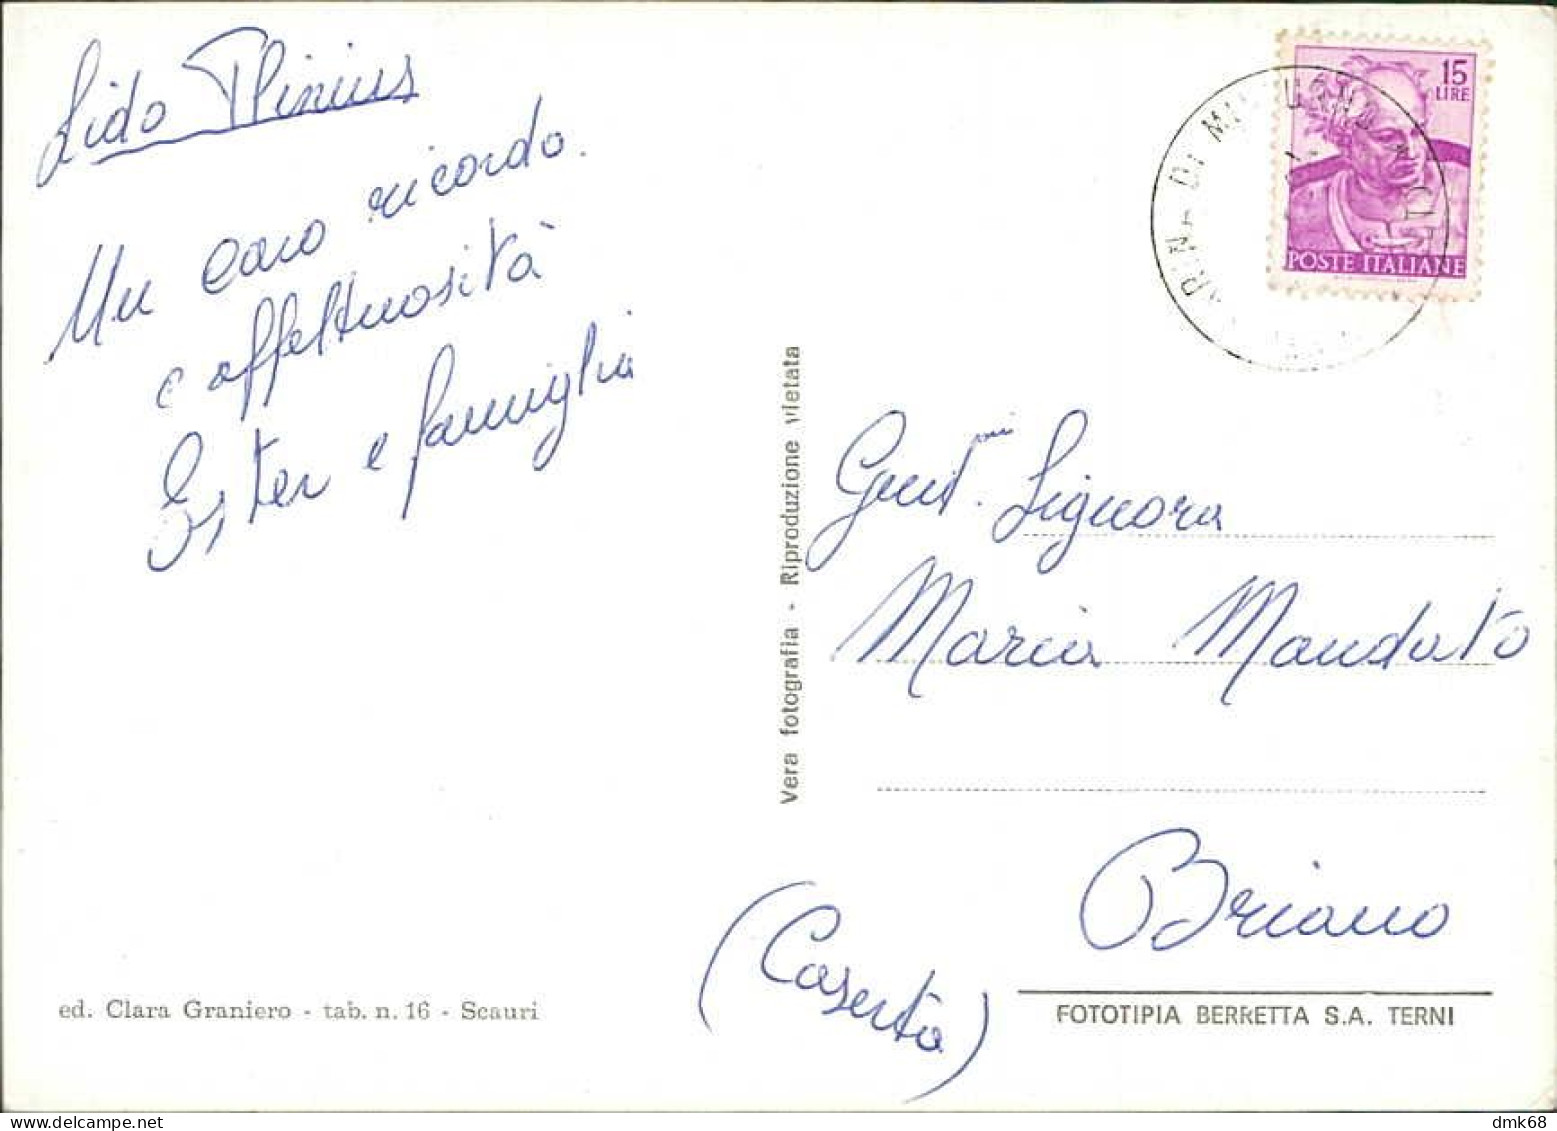 Lido Plinius
Un caro ricordo.
e affettuosità
Ester e famiglia
15
LIRE
POSTE ITALIANE
DI
Vera fotografia - Riproduzione vietata
Gent.ma Signora
Maria Mandato
Briano
(Caserta)
ed. Clara Graniero - tab. n. 16 - Scauri
FOTOTIPIA BERRETTA S.A. TERNI
dmk68